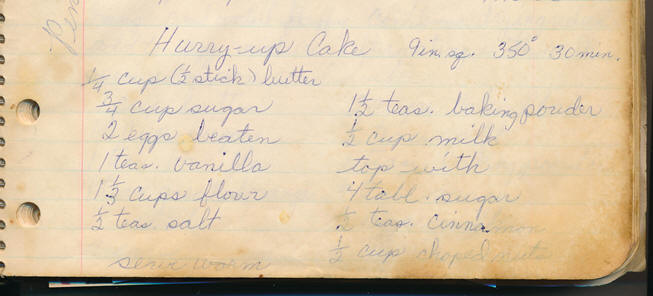 Pen
Hurry-up Cake 9 in. sq. 350° 30 min.
1/4 cup (1/2 stick) butter
3/4 cup sugar
2 eggs beaten
1 teas. vanilla
1 1/3 cups flour
1/2 teas. salt
serve warm
1 1/2 teas. baking powder
1/2 cup milk
top with
4 tabl. sugar
1/2 teas. cinnamon
1/2 cup choped nuts